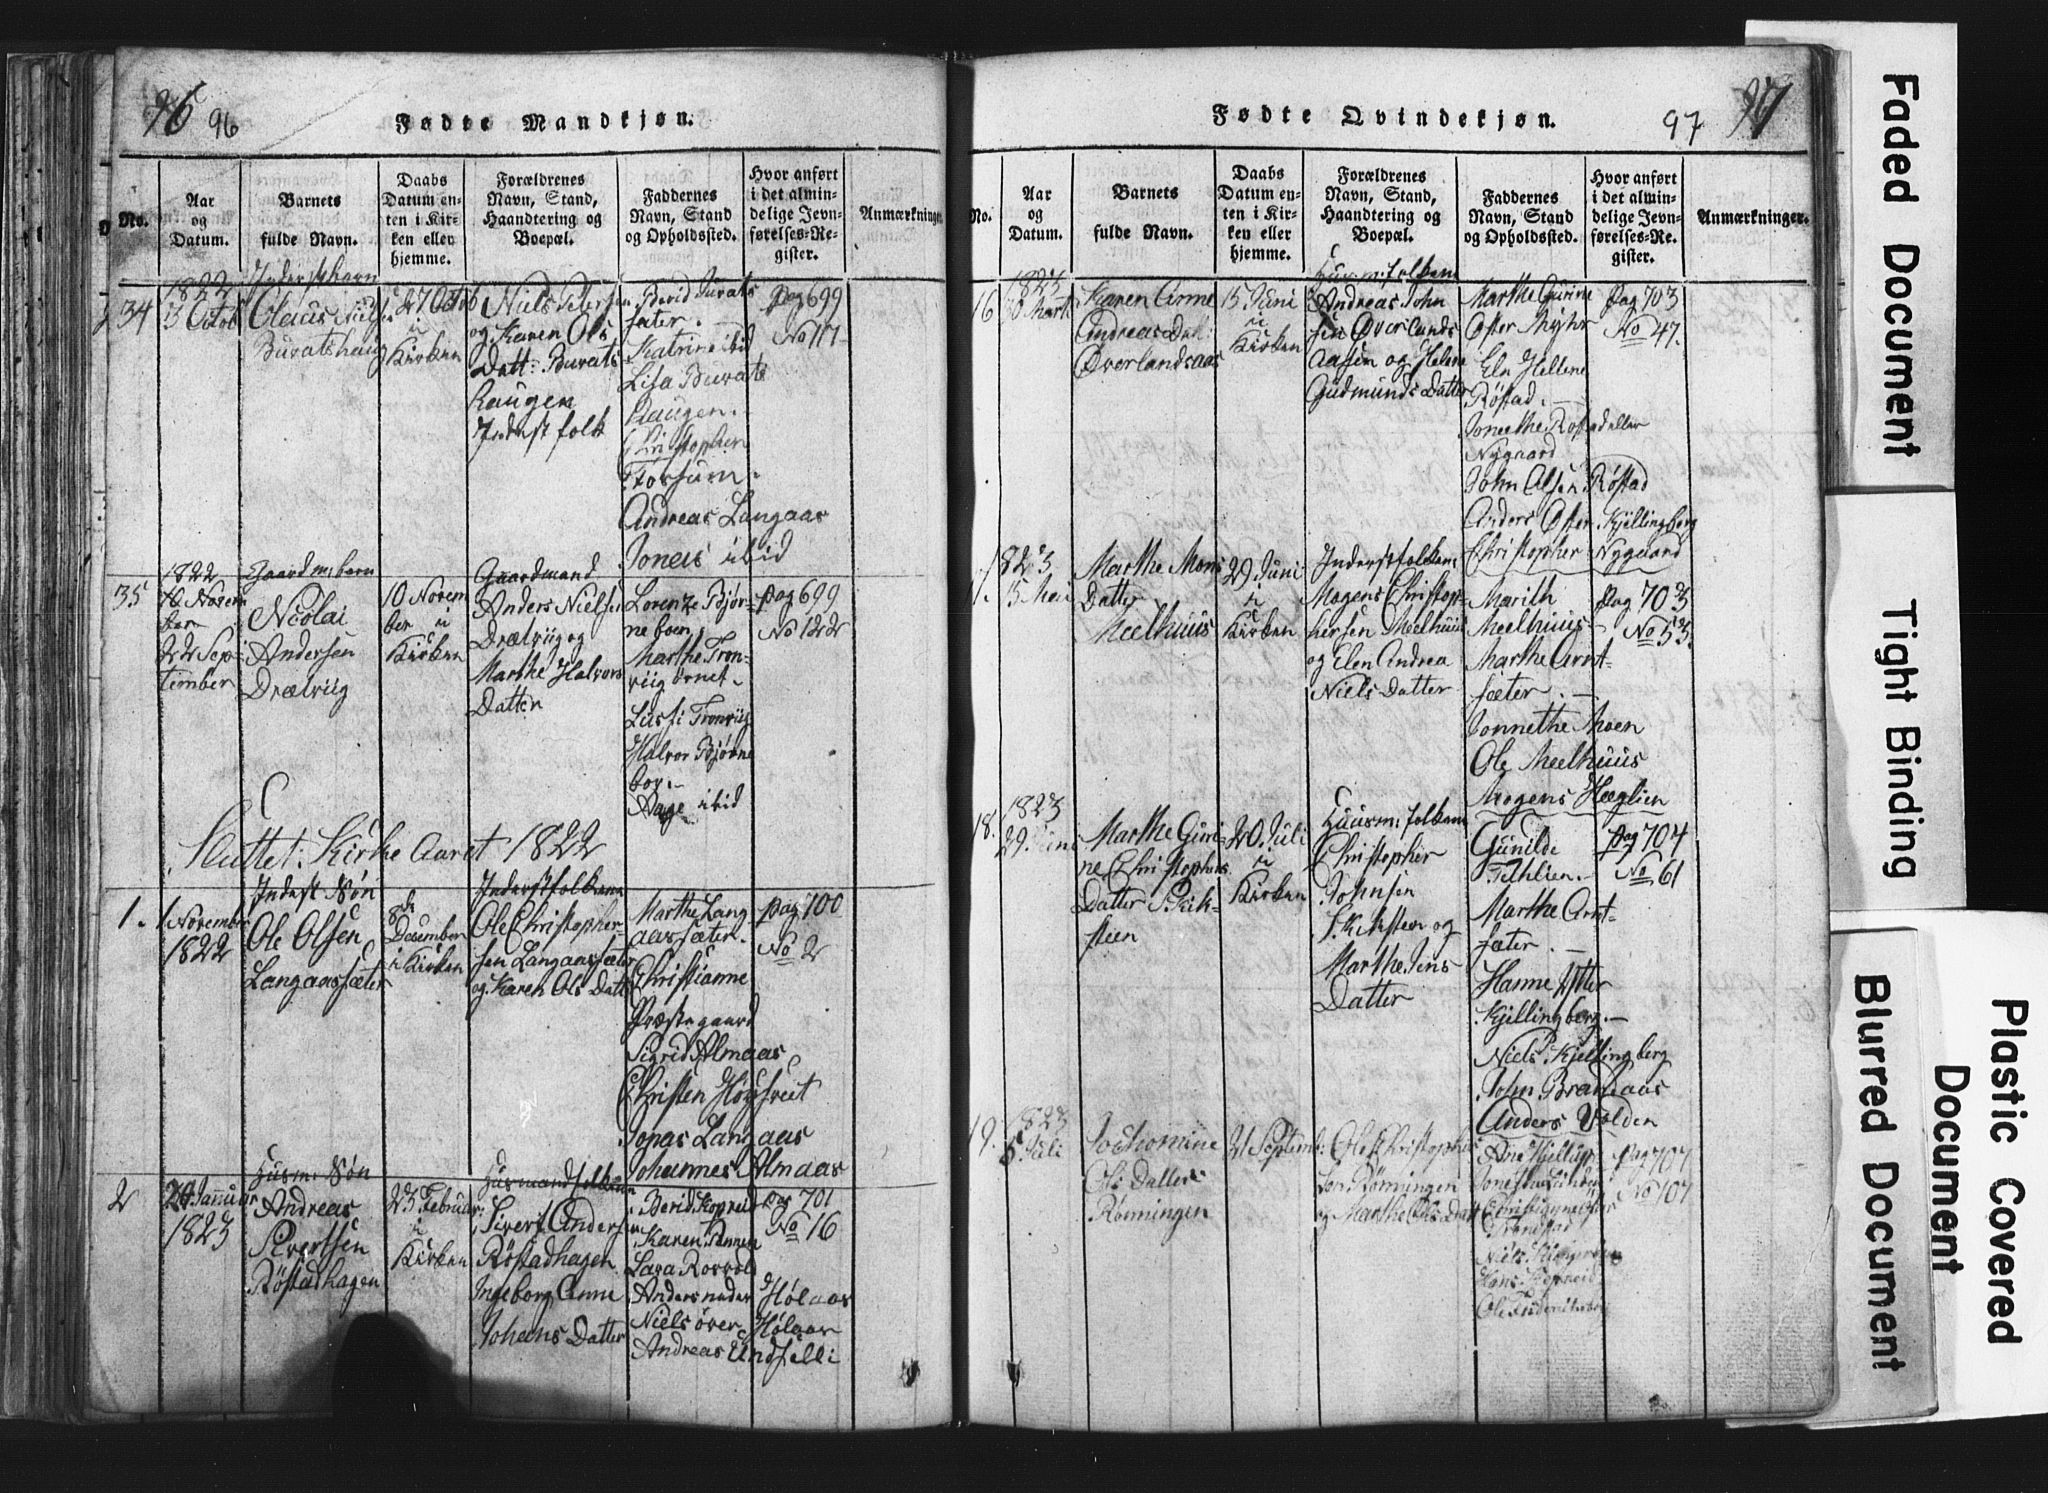 96 96
Fødte Mandkjøn.
No.
Aar
og
Datum.
Barnets
fulde Navn.
Daabs
Datum en-
ten i Kir-
ken eller
hjemme.
Forældrenes
Navn, Stand,
Haandtering og
Boepæl.
Faddernes
Navn, Stand
og Opholdssted.
Hvor anført
i det almin-
delige Jevn-
førelses-Re-
gister.
Anmærkninger.
34
1822
13 Octob
Inderstbarn
Olaus Niels
Buratshaug
27 Octob
i
Kirken
Niels Petersen
og Karen Ols
Datt: Burats
Haugen
Inderstfolk
Berid Burats
sæter.
Katrine ibid
Lisa Burats
Haugen.
Christopher
Forsum.
Andreas Langaas
Jonas ibid
Pag 699
No 117
35
1822
22 Sep-
tember
Gaardm: barn
Nicolai
Andersen
Drætviig
10 Novem
ber i
Kirken
Gaardmand
Anders Nielsen
Drætviig og
Marthe Halvors
Datter
Lorenze Bjør-
neboer,
Marthe Tron-
viig
Lussi Tronviig
Halvor Bjørne
boe.
Aage ibid
Pag 699
No 122
Sluttet: Kirke Aaret 1822
1.
1 November
1822
Inderst Søn
Ole Olsen
Langaassæter
8de
December
i Kirken
Inderstfolkene
Ole Christopher-
sen Langaassæter
og Karen Ols Datt
Marthe Lang
aassæter.
Christianne
Præstegaard
Sigrid Almaas
Christen
Jonas Langaas
Johannes Almaas
Pag 700
No 2
2
20 Januar
1823
Husm: Søn
Andreas
Sivertsen
Røstadhagen
23 Februar
i
Kirken
Husmandsfolkene
Sivert Andersen
Røstadhagen
Ingeborg Anne
Johans Datter
Berid Kopreid
Karen
Lava Rosvold
Anders neder Hølaas
Niels øver Hølaas
Andreas Undselli
Pag 701
No 16
97 97
Fødte Qvindekjøn.
No.
Aar
og
Datum.
Barnets
fulde Navn.
Daabs
Datum en-
ten i Kir-
ken eller
hjemme.
Forældrenes
Navn, Stand,
Haandtering og
Boepæl.
Faddernes
Navn, Stand
og Opholdssted.
Hvor anført
i det almin-
delige Jevn-
førelses-Re-
gister.
Anmærkninger.
16
1823
30 Marts
Karen Anne
Andreas Dat:
Øverlandsaas
15 Juni
i
Kirken
Husm: folkene
Andreas John
sen Øverlands
aasen og Helene
Gudmunds Datter
Marthe Gurine
Øster Myhr
Eln Hellene
Røstad.
Jonethe Røstad eller
Nygaard
John Olsen Røstad
Anders Øster Kjellingberg
Christopher Nygaard
Pag 703
No 47.
17.
1823
15 Mai
Marthe Mons
Datter
Meelhuus
29 Juni
i
Kirken
Inderstfolkene
Mogens Christop-
hersen Meelhuus
og Elen Andrea
Niels Datter
Marith
Meelhuus
Marthe Arnt-
sæter.
Jonnethe Moen
Ole Meelhuus
Mogens Hæglien
Pag 703
No 53.
18.
1823
29 Juni
Marthe Guri-
ne Christophers
Datter Skik-
steen
20 Juli
i
Kirken
Huusm: folkene
Christopher
Johnsen
Skiksteen og
Marthe Jens
Datter
Gunilde
Fihlien.
Marthe Arnt-
sæter.
Hanne Ytter
Kjellingberg.
Niels Kjellingberg
John Brandaas
Anders Volden
Pag 704
No 61
19.
1823
6 Juli
Jochomine
Ols Datter
Rønningen
21 Septemb:
Ole Christopher
sen Rønningen
og Marthe Ols Datt
Ane
Pag 707
No 107
Faded Document
Tight Binding
Blurred Document
Plastic Covered
Document